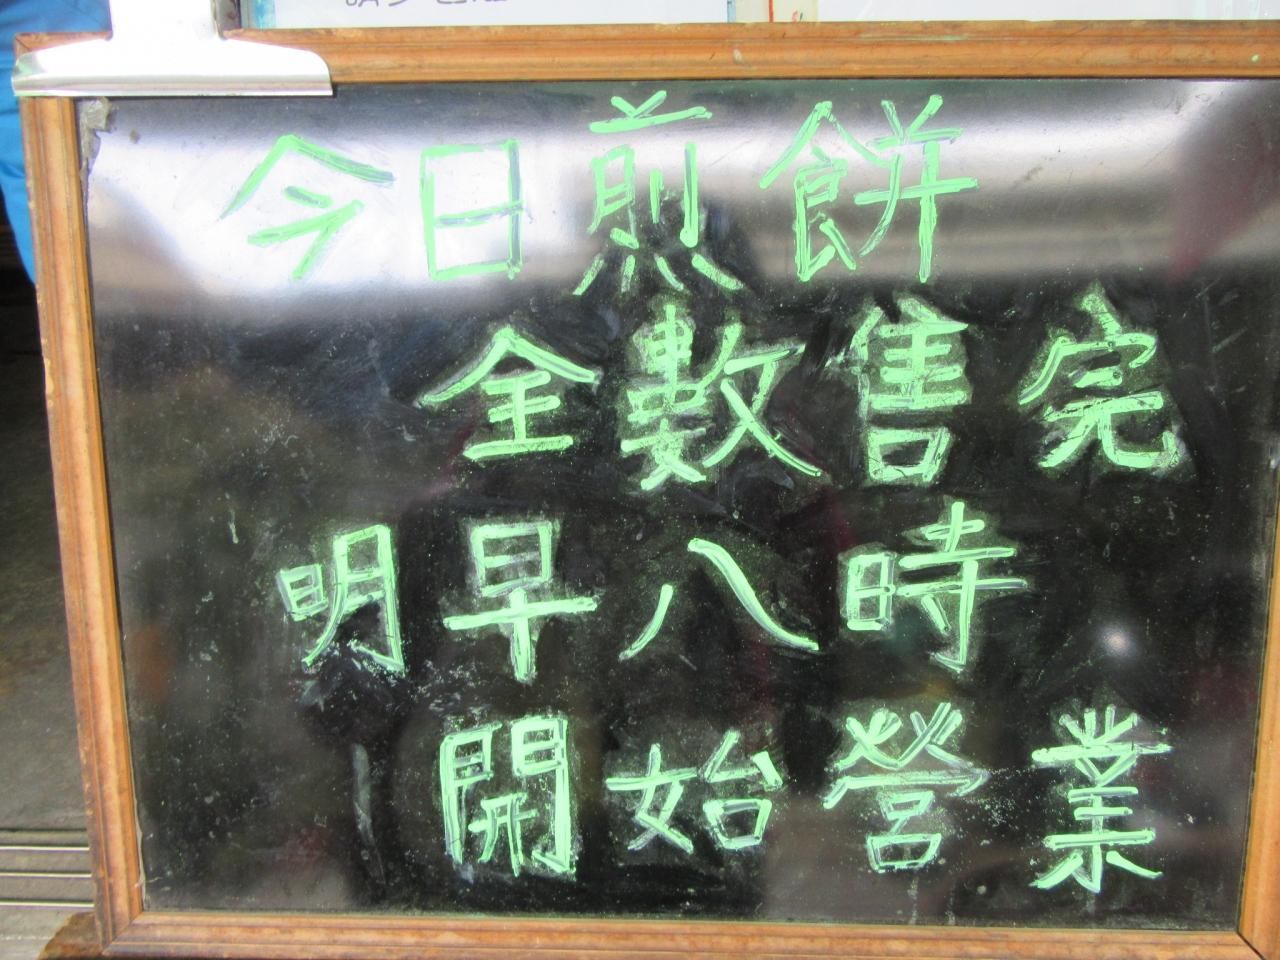 今日煎餅
全數售完
明早八時
開始營業